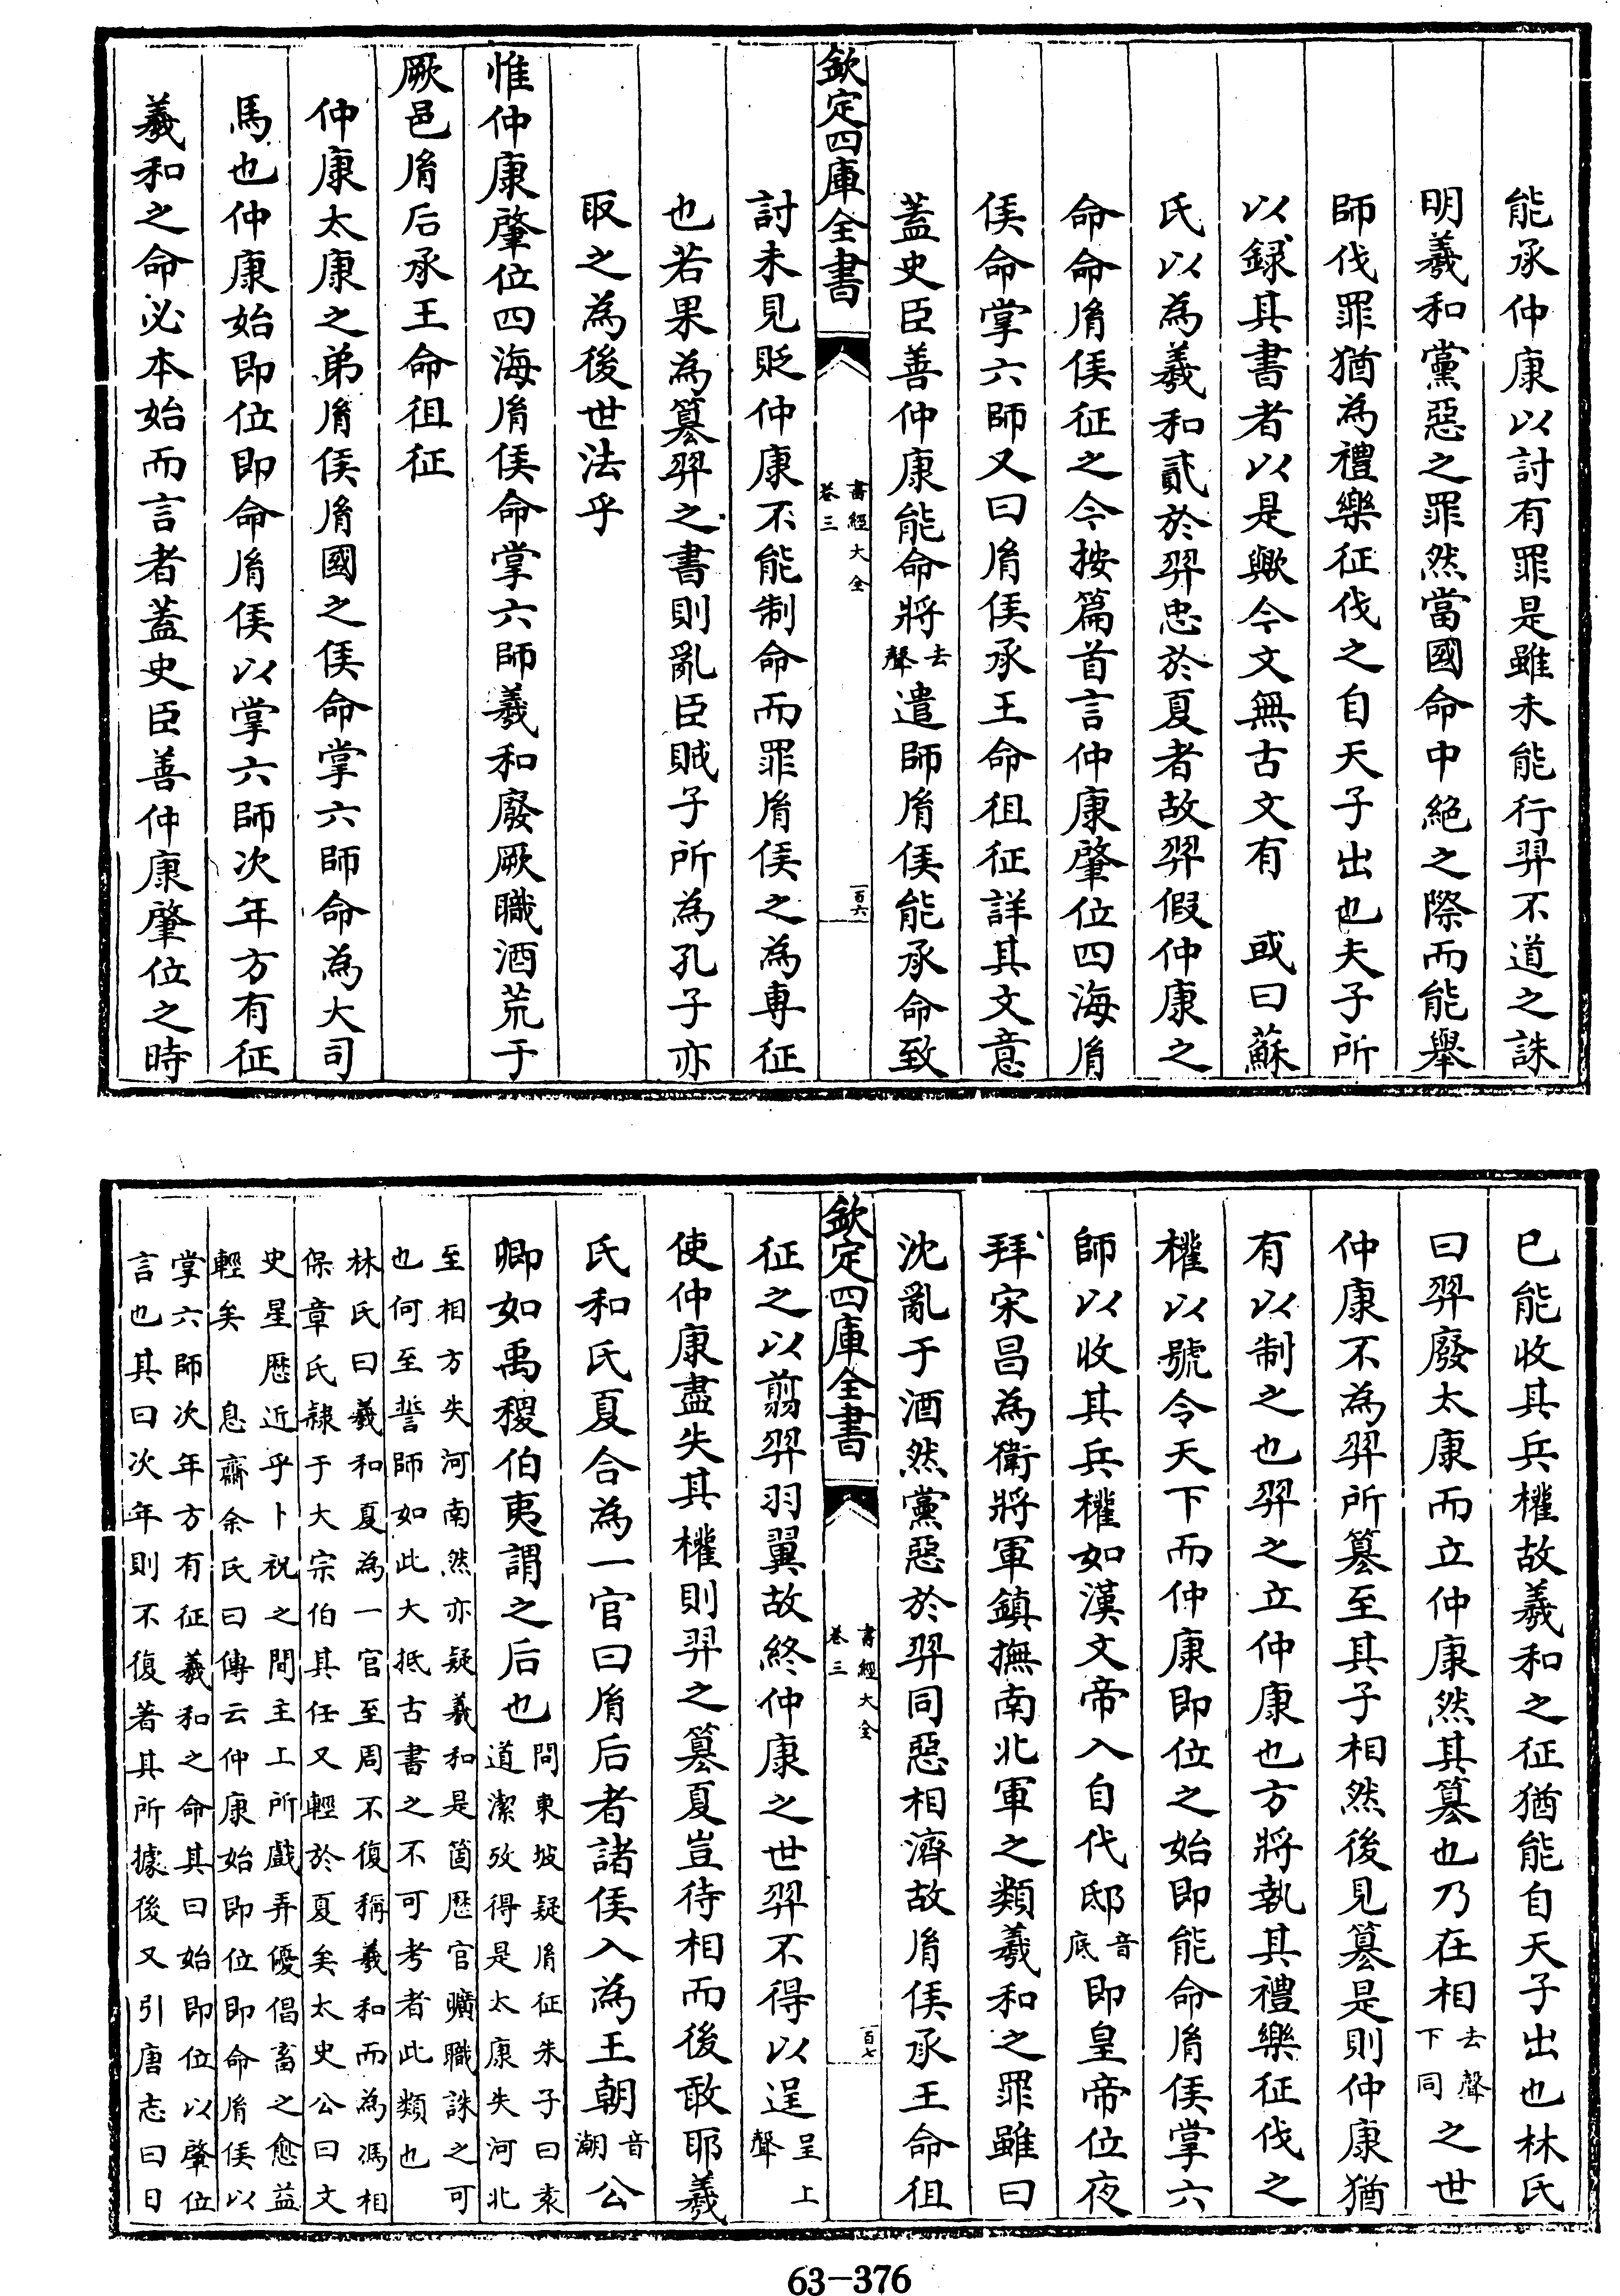 能承仲康以討有罪是雖未能行羿不道之誅
明羲和黨惡之罪然當國命中絕之際而能舉
師伐罪猶為禮樂征伐之自天子出也夫子所
以録其書者以是歟今文無古文有　或曰蘇
氏以為羲和貳於羿忠於夏者故羿假仲康之
命命胤侯征之今按篇首言仲康肇位四海胤
侯命掌六師又曰胤侯承王命徂征詳其文意
蓋史臣善仲康能命將去聲遣師胤侯能承命致
欽定四庫全書
書經大全
卷三
一百六
討未見貶仲康不能制命而罪胤侯之為專征
也若果為簒羿之書則亂臣賊子所為孔子亦
取之為後世法乎
惟仲康肇位四海胤侯命掌六師羲和廢厥職酒荒于
厥邑胤后承王命徂征
仲康太康之弟胤侯胤國之侯命掌六師命為大司
馬也仲康始即位即命胤侯以掌六師次年方有征
羲和之命必本始而言者蓋史臣善仲康肇位之時
已能收其兵權故羲和之征猶能自天子出也林氏
曰羿廢太康而立仲康然其簒也乃在相去聲下同之世
仲康不為羿所簒至其子相然後見簒是則仲康猶
有以制之也羿之立仲康也方將執其禮樂征伐之
權以號令天下而仲康即位之始即能命胤侯掌六
師以收其兵權如漢文帝入自代邸音底即皇帝位夜
拜宋昌為衛將軍鎮撫南北軍之類羲和之罪雖曰
沈亂于酒然黨惡於羿同惡相濟故胤侯承王命徂
欽定四庫全書
書經大全
卷三
一百七
征之以翦羿羽翼故終仲康之世羿不得以逞呈上聲
使仲康盡失其權則羿之簒夏豈待相而後敢耶羲
氏和氏夏合為一官曰胤后者諸侯入為王朝音潮公
卿如禹稷伯夷謂之后也問東坡疑胤征朱子曰袁
道潔攷得是太康失河北
至相方失河南然亦疑羲和是箇厯官曠職誅之可
也何至誓師如此大抵古書之不可考者此類也
林氏曰羲和夏為一官至周不復稱羲和而為馮相
保章氏隷于大宗伯其任又輕於夏矣太史公曰文
史星厯近乎卜祝之間主上所戲弄優倡畜之愈益
輕矣　息齋余氏曰傳云仲康始即位即命胤侯以
掌六師次年方有征羲和之命其曰始即位以肇位
言也其曰次年則不復著其所據後又引唐志曰日
63-376